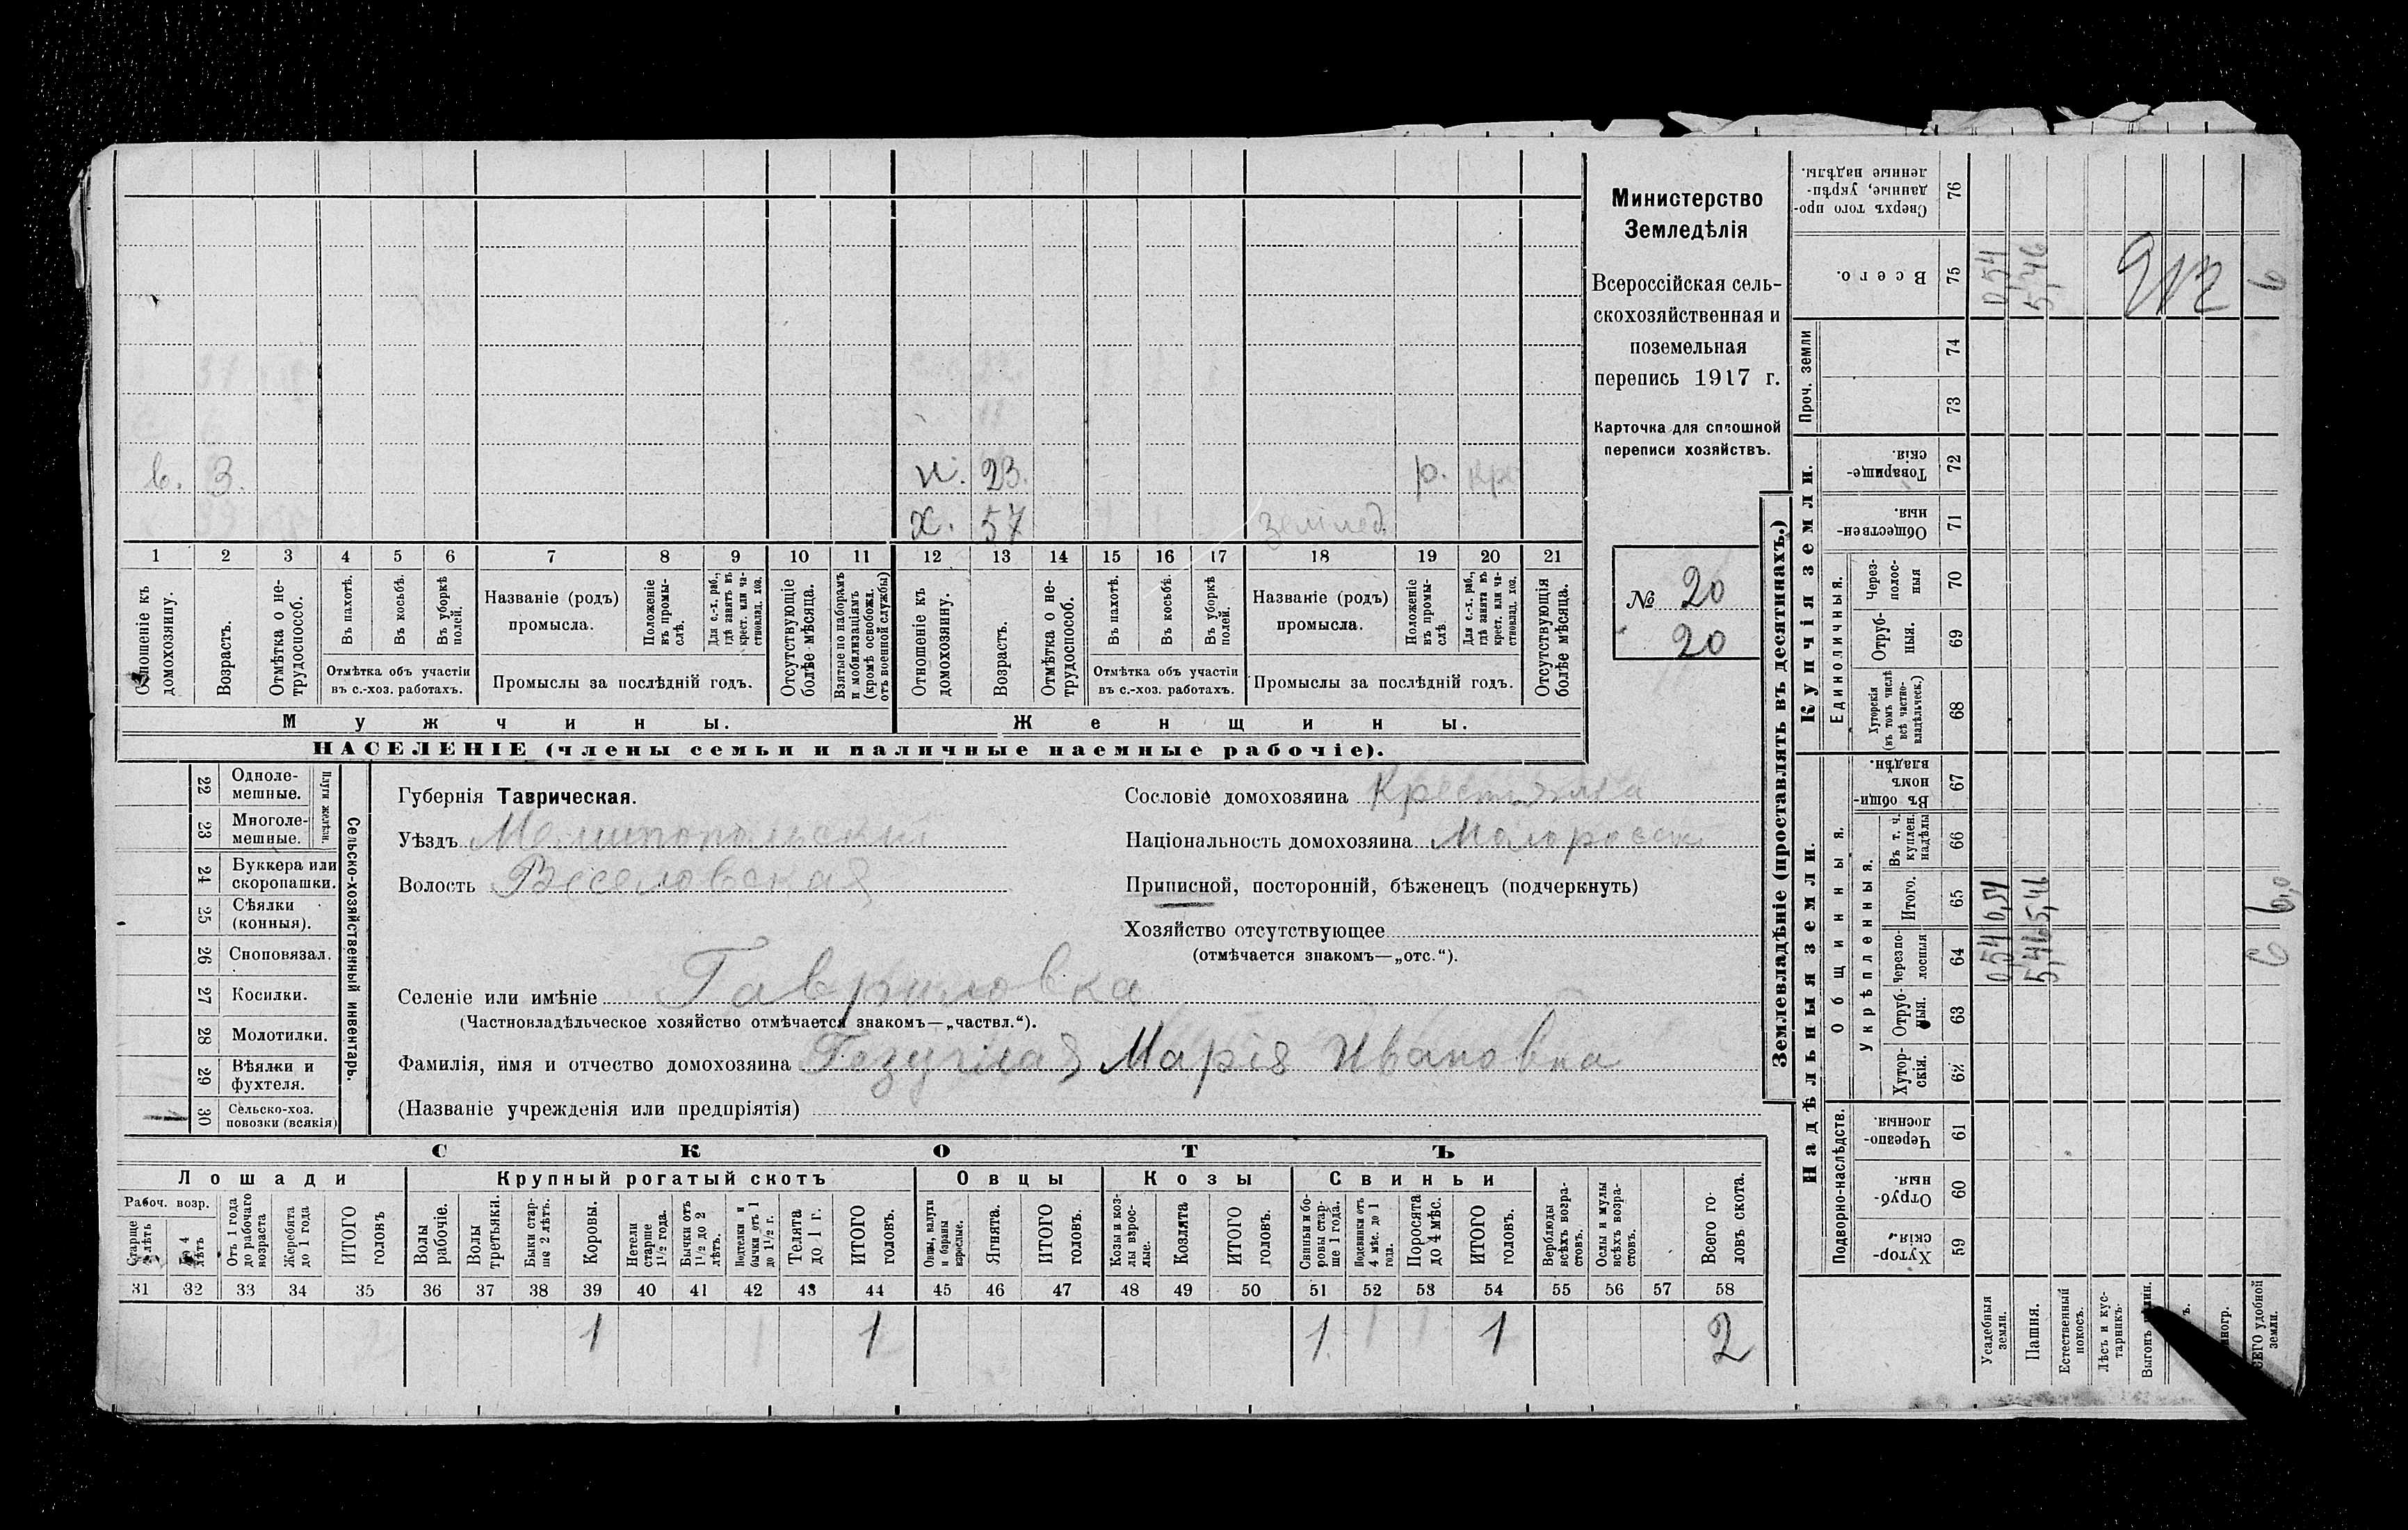 Министерство
Земледѣлія
Всероссійская сель-
скохозяйственная и
поземельная
перепись 1917 г.
Карточка для сплошной
переписи хозяйствъ.
№ 20
20
в. 3. н. 23. р. кр
х. 57 землед.
1 2 3 4 5 6 7 8 9 10 11 12 13 14 15 16 17 18 19 20 21
Отношеніе къ домохозяину.
Возрастъ.
Отмѣтка о не-
трудоспособ.
Въ пахотѣ.
Въ косьбѣ.
Въ уборкѣ полей.
Отмѣтка объ участіи
въ с.-хоз. работахъ.
Названіе (родъ)
промысла.
Положеніе въ промы-
слѣ.
Для с.-х. раб., гдѣ занятъ въ крест. или ча-
стновлад. хоз.
Промыслы за послѣдній годъ.
Отсутствующіе болѣе мѣсяца.
Взятые по наборамъ и мобилизаціямъ (кромѣ освобожд. отъ военной службы)
Отношеніе къ домохозяину.
Возрастъ.
Отмѣтка о не-
трудоспособ.
Въ пахотѣ.
Въ косьбѣ.
Въ уборкѣ полей.
Отмѣтка объ участіи
въ с.-хоз. работахъ.
Названіе (родъ)
промысла.
Положеніе въ промы-
слѣ
Для с.-х. раб., гдѣ занята въ крест. или ча-
стновлад. хоз.
Промыслы за послѣдній годъ.
Отсутствующія болѣе мѣсяца.
Мужчины. Женщины.
НАСЕЛЕНІЕ (члены семьи и наличные наемные рабочіе).
Сельско-хозяйственный инвентарь.
Плуги желѣзн.
22 Одноле-
мешные.
23 Многоле-
мешные.
24 Буккера или
скоропашки.
25 Сѣялки
(конныя).
26 Сноповязал.
27 Косилки.
28 Молотилки.
29 Вѣялки и
фухтеля.
30 Сельско-хоз.
повозки (всякія)
1
Губернія Таврическая.
Уѣздъ Мелитопольский
Волость Веселовская
Сословіе домохозяина Крестьянка
Національность домохозяина Малоросс
Приписной, посторонній, бѣженецъ (подчеркнуть)
Хозяйство отсутствующее
(отмѣчается знакомъ—„отс.“).
Селеніе или имѣніе Гавриловка
(Частновладѣльческое хозяйство отмѣчается знакомъ—„частвл.“).
Фамилія, имя и отчество домохозяина Марія Ивановна
(Названіе учрежденія или предпріятія)
СКОТЪ
Лошади Крупный рогатый скотъ Овцы Козы Свиньи
Рабоч. возр.
Старше 4 лѣтъ
До 4 лѣтъ
Отъ 1 года до рабочаго возраста
Жеребята до 1 года
ИТОГО головъ
Волы рабочіе.
Волы третьяки.
Быки стар-
ше 2 лѣтъ.
Коровы.
Нетели старше 1½ года.
Бычки отъ 1½ до 2 лѣтъ.
Подтелки и бычки отъ 1 до 1½ г.
Телята до 1 г.
ИТОГО головъ.
Овцы, валухи и бараны взрослые.
Ягнята.
ИТОГО головъ.
Козы и коз-
лы взрос-
лые.
Козлята
ИТОГО головъ.
Свиньи и бо-
ровы стар-
ше 1 года.
Подсвинки отъ 4 мѣс. до 1 года.
Поросята до 4 мѣс.
ИТОГО головъ.
Верблюды всѣхъ возра-
стовъ.
Ослы и мулы всѣхъ возра-
стовъ.
Всего го-
ловъ скота.
31 32 33 34 35 36 37 38 39 40 41 42 43 44 45 46 47 48 49 50 51 52 53 54 55 56 57 58
1 1 1 1 2
Землевладѣніе (проставлять въ десятинахъ.)
Надѣльныя земли. Купчія земли. Проч. земли
Подворно-наслѣдств.
Общинныя.
Укрѣпленныя.
Единоличныя.
Хутор-
скія. 59
Отруб-
ныя. 60
Черезпо-
лосныя. 61
Хутор-
скія. 62
Отруб-
ныя. 63
Черезпо-
лосныя 64
Итого. 65
Въ т. ч. куплен. надѣлы 66
Въ общи-
номъ владѣн. 67
Хуторскія (въ томъ числѣ всѣ частно-
владѣльческ.) 68
Отруб-
ныя. 69
Через-
полос-
ныя 70
Обществен-
ныя. 71
Товарище-
скія. 72
73
74
Всего. 75
Сверхъ того про-
данные, укрѣп-
ленные надѣлы. 76
Усадебныя земли. 0,54 0,54 0,54
Пашня. 5,46 5,46 5,46
Естественный покосъ.
Лѣсъ и кус-
тарникъ.
Выгонъ
ВСЕГО удобной земли. 6 6,0 6